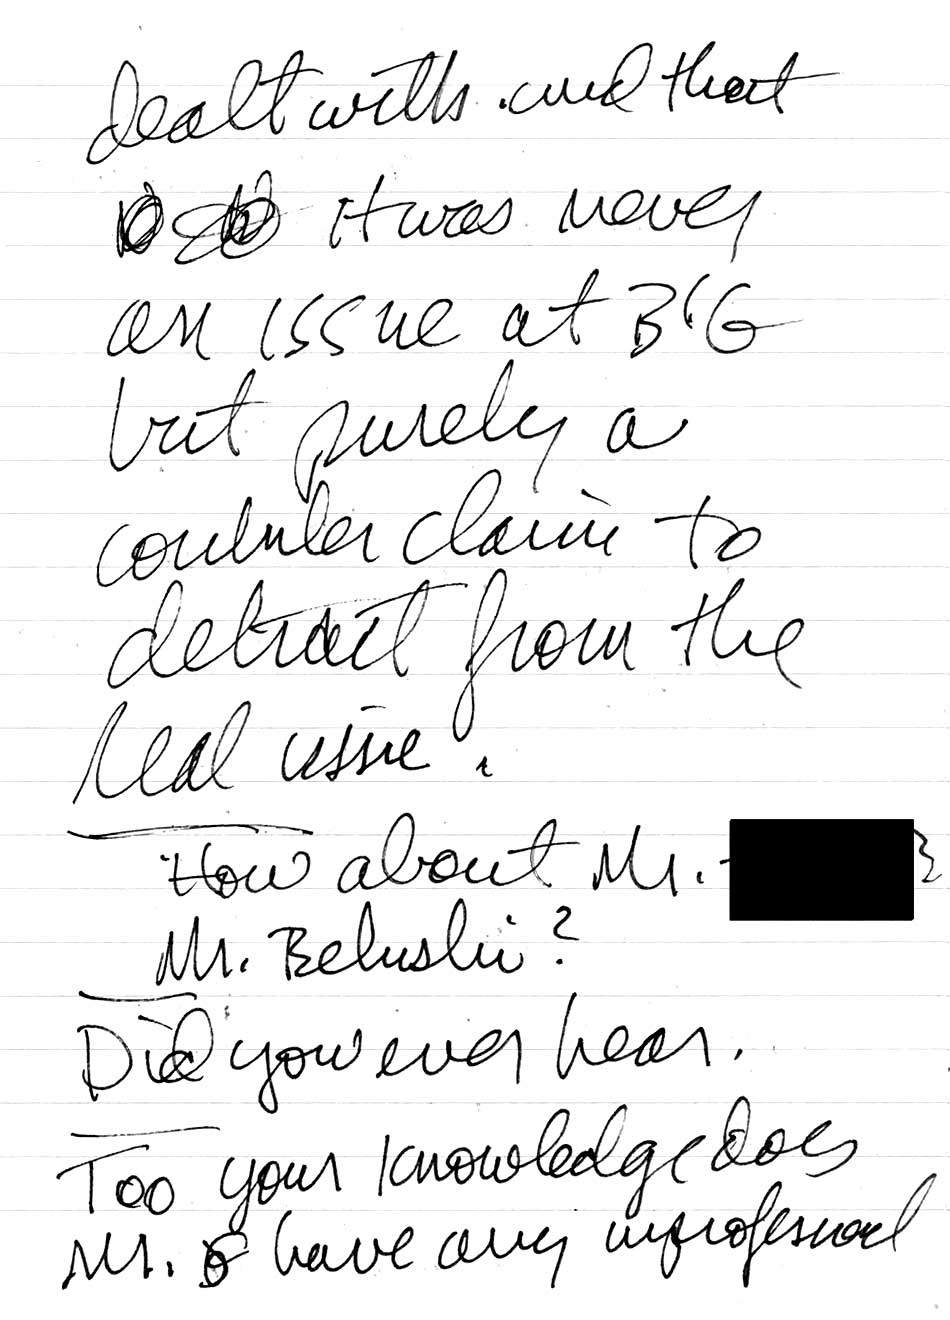 dealt with and that
it was never
an issue at BCG
but purely a
counter claim to
detract from the
real issue.
How about Mr.
Mr. Belushi?
Did you ever hear.
Too your knowledge does
Mr. have any unprofessional